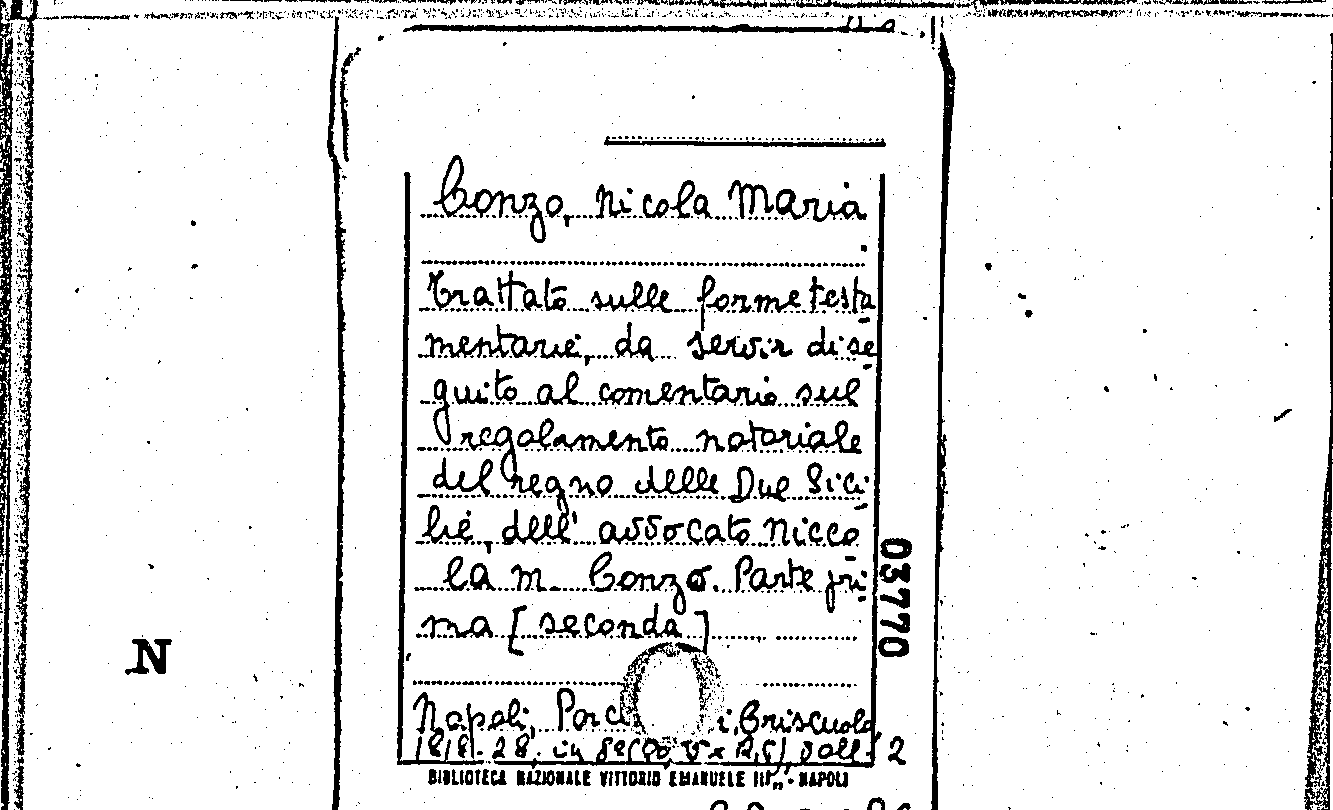 Conzo, Nicola Maria
Trattato sulle forme testa
mentarie, da servir di se
guito al comentario sul
regolamento notariale
del regno delle Due Sici
lie, dell' avvocato Nicco
la M. Conzo. Parte pri
ma [seconda]
Napoli, Porc i, Criscuolo,
1818-28, in 2
BIBLIOTECA NAZIONALE VITTORIO EMANUELE III„ - NAPOLI
03770
N